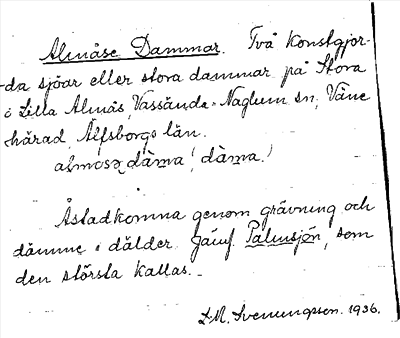 Almåse Dammar. Två konstgjor-
da sjöar eller stora dammar på Stora
o Lilla Almås, Vassända-Naglum sn, Väne
härad, Älfsborgs län.
dàma! dàma!
Åstadkomna genom grävning och
dämme i dälder. Jämf. Palmsjön, som
den största kallas.
L.M. Svenungsson. 1936.